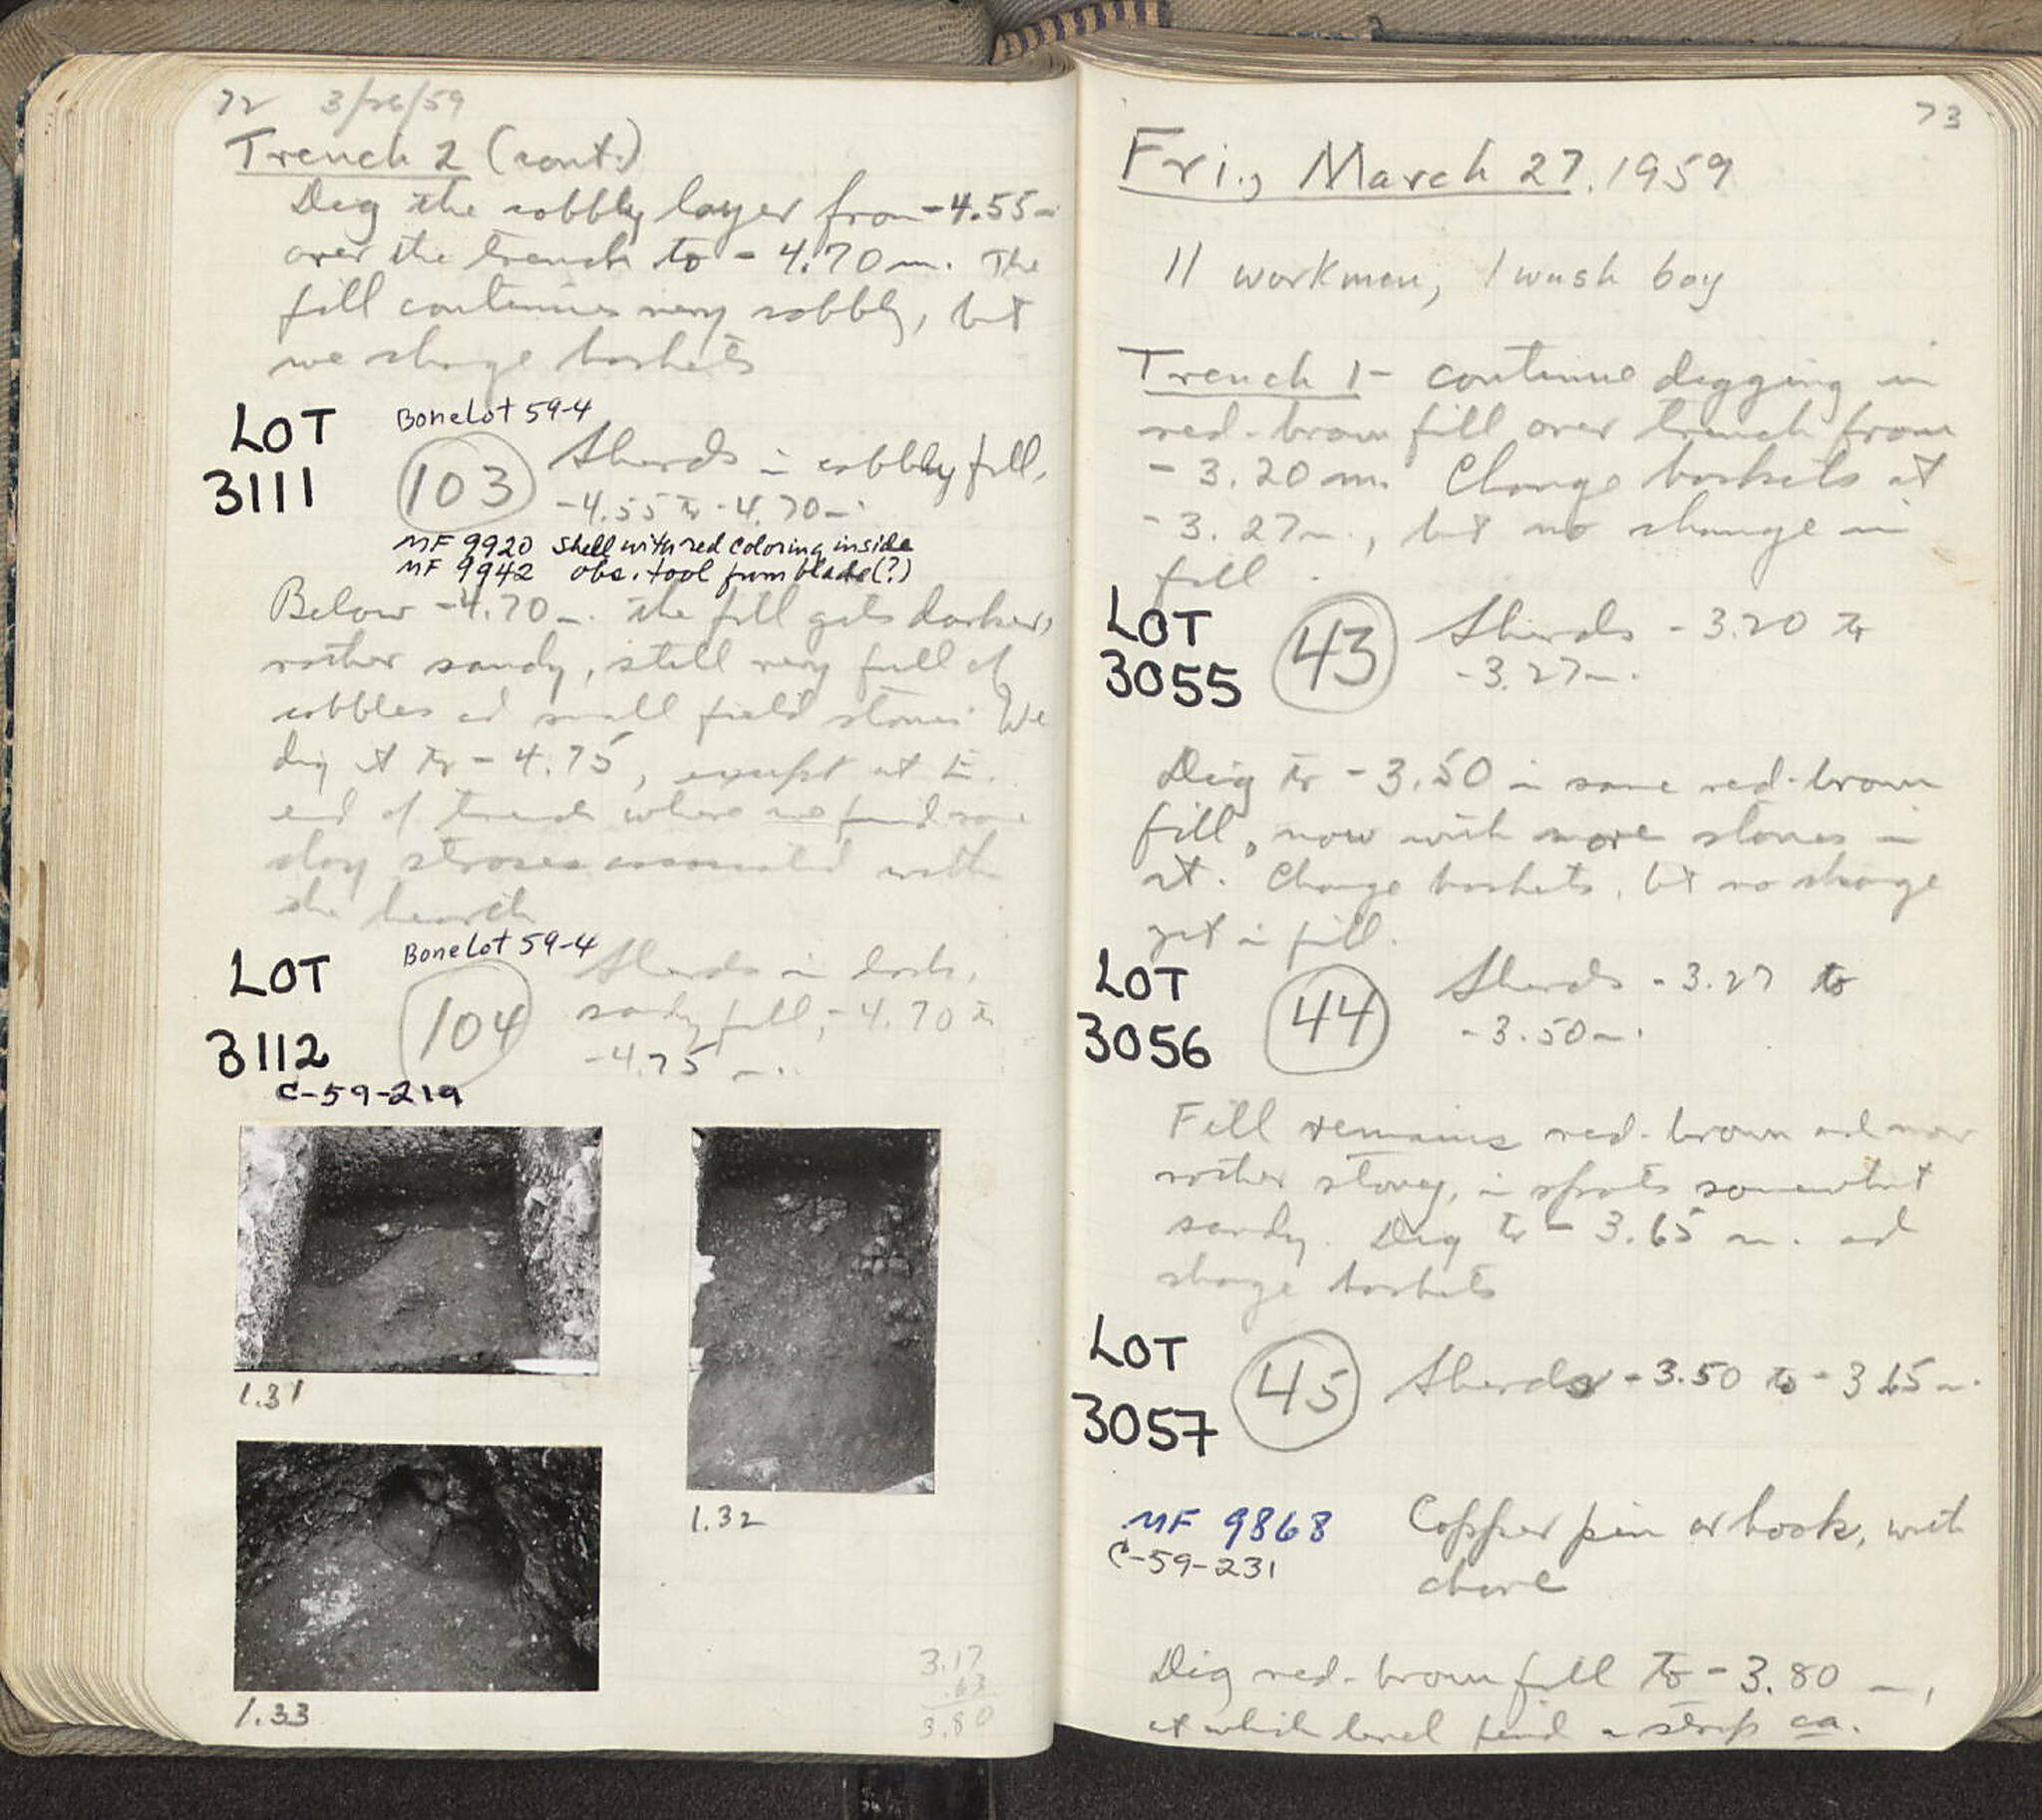 72 3/26/59
Trench 2 (cont.)
Dig the cobbly layer from -4.55m
over the trench to -4.70m. The
fill continues very cobbly, but
we change baskets
LOT
3111
BoneLot 59-4
103 Sherds in cobbly fill,
-4.55 to -4.70m.
MF 9920 shell with red coloring inside
MF 9942 obs. tool from blade(?)
Below -4.70m. the fill gets darker,
rather sandy, still very full of
cobbles and small field stones. We
dig it to -4.75, except at E.
end of trench where we find some
clay associated with
the hearth
LOT
3112
BoneLot 59-4
104 Sherds in dark,
sandy fill, -4.70 to
-4.75 m.
C-59-219
1.31
1.32
1.33
3.17
.63
3.80
73
Fri., March 27, 1959
11 workmen, 1 wash boy
Trench 1 - continue digging in
red-brown fill over trench from
-3.20 m. Change baskets at
-3.27m., but no change in
fill.
LOT
3055
43 Sherds -3.20 to
-3.27m.
Dig to -3.50 in same red-brown
fill, now with more stones in
it. Change baskets, but no change
yet in fill.
LOT
3056
44 Sherds -3.27 to
-3.50m.
Fill remains red-brown and now
rather stoney, in spots somewhat
sandy. Dig to -3.65 m. and
change baskets
LOT
3057
45 Sherds -3.50 to -3.65m.
MF 9868
C-59-231
Copper pin or hook, with
above
Dig red-brown fill to -3.80 m,
at which level find a strip ca.